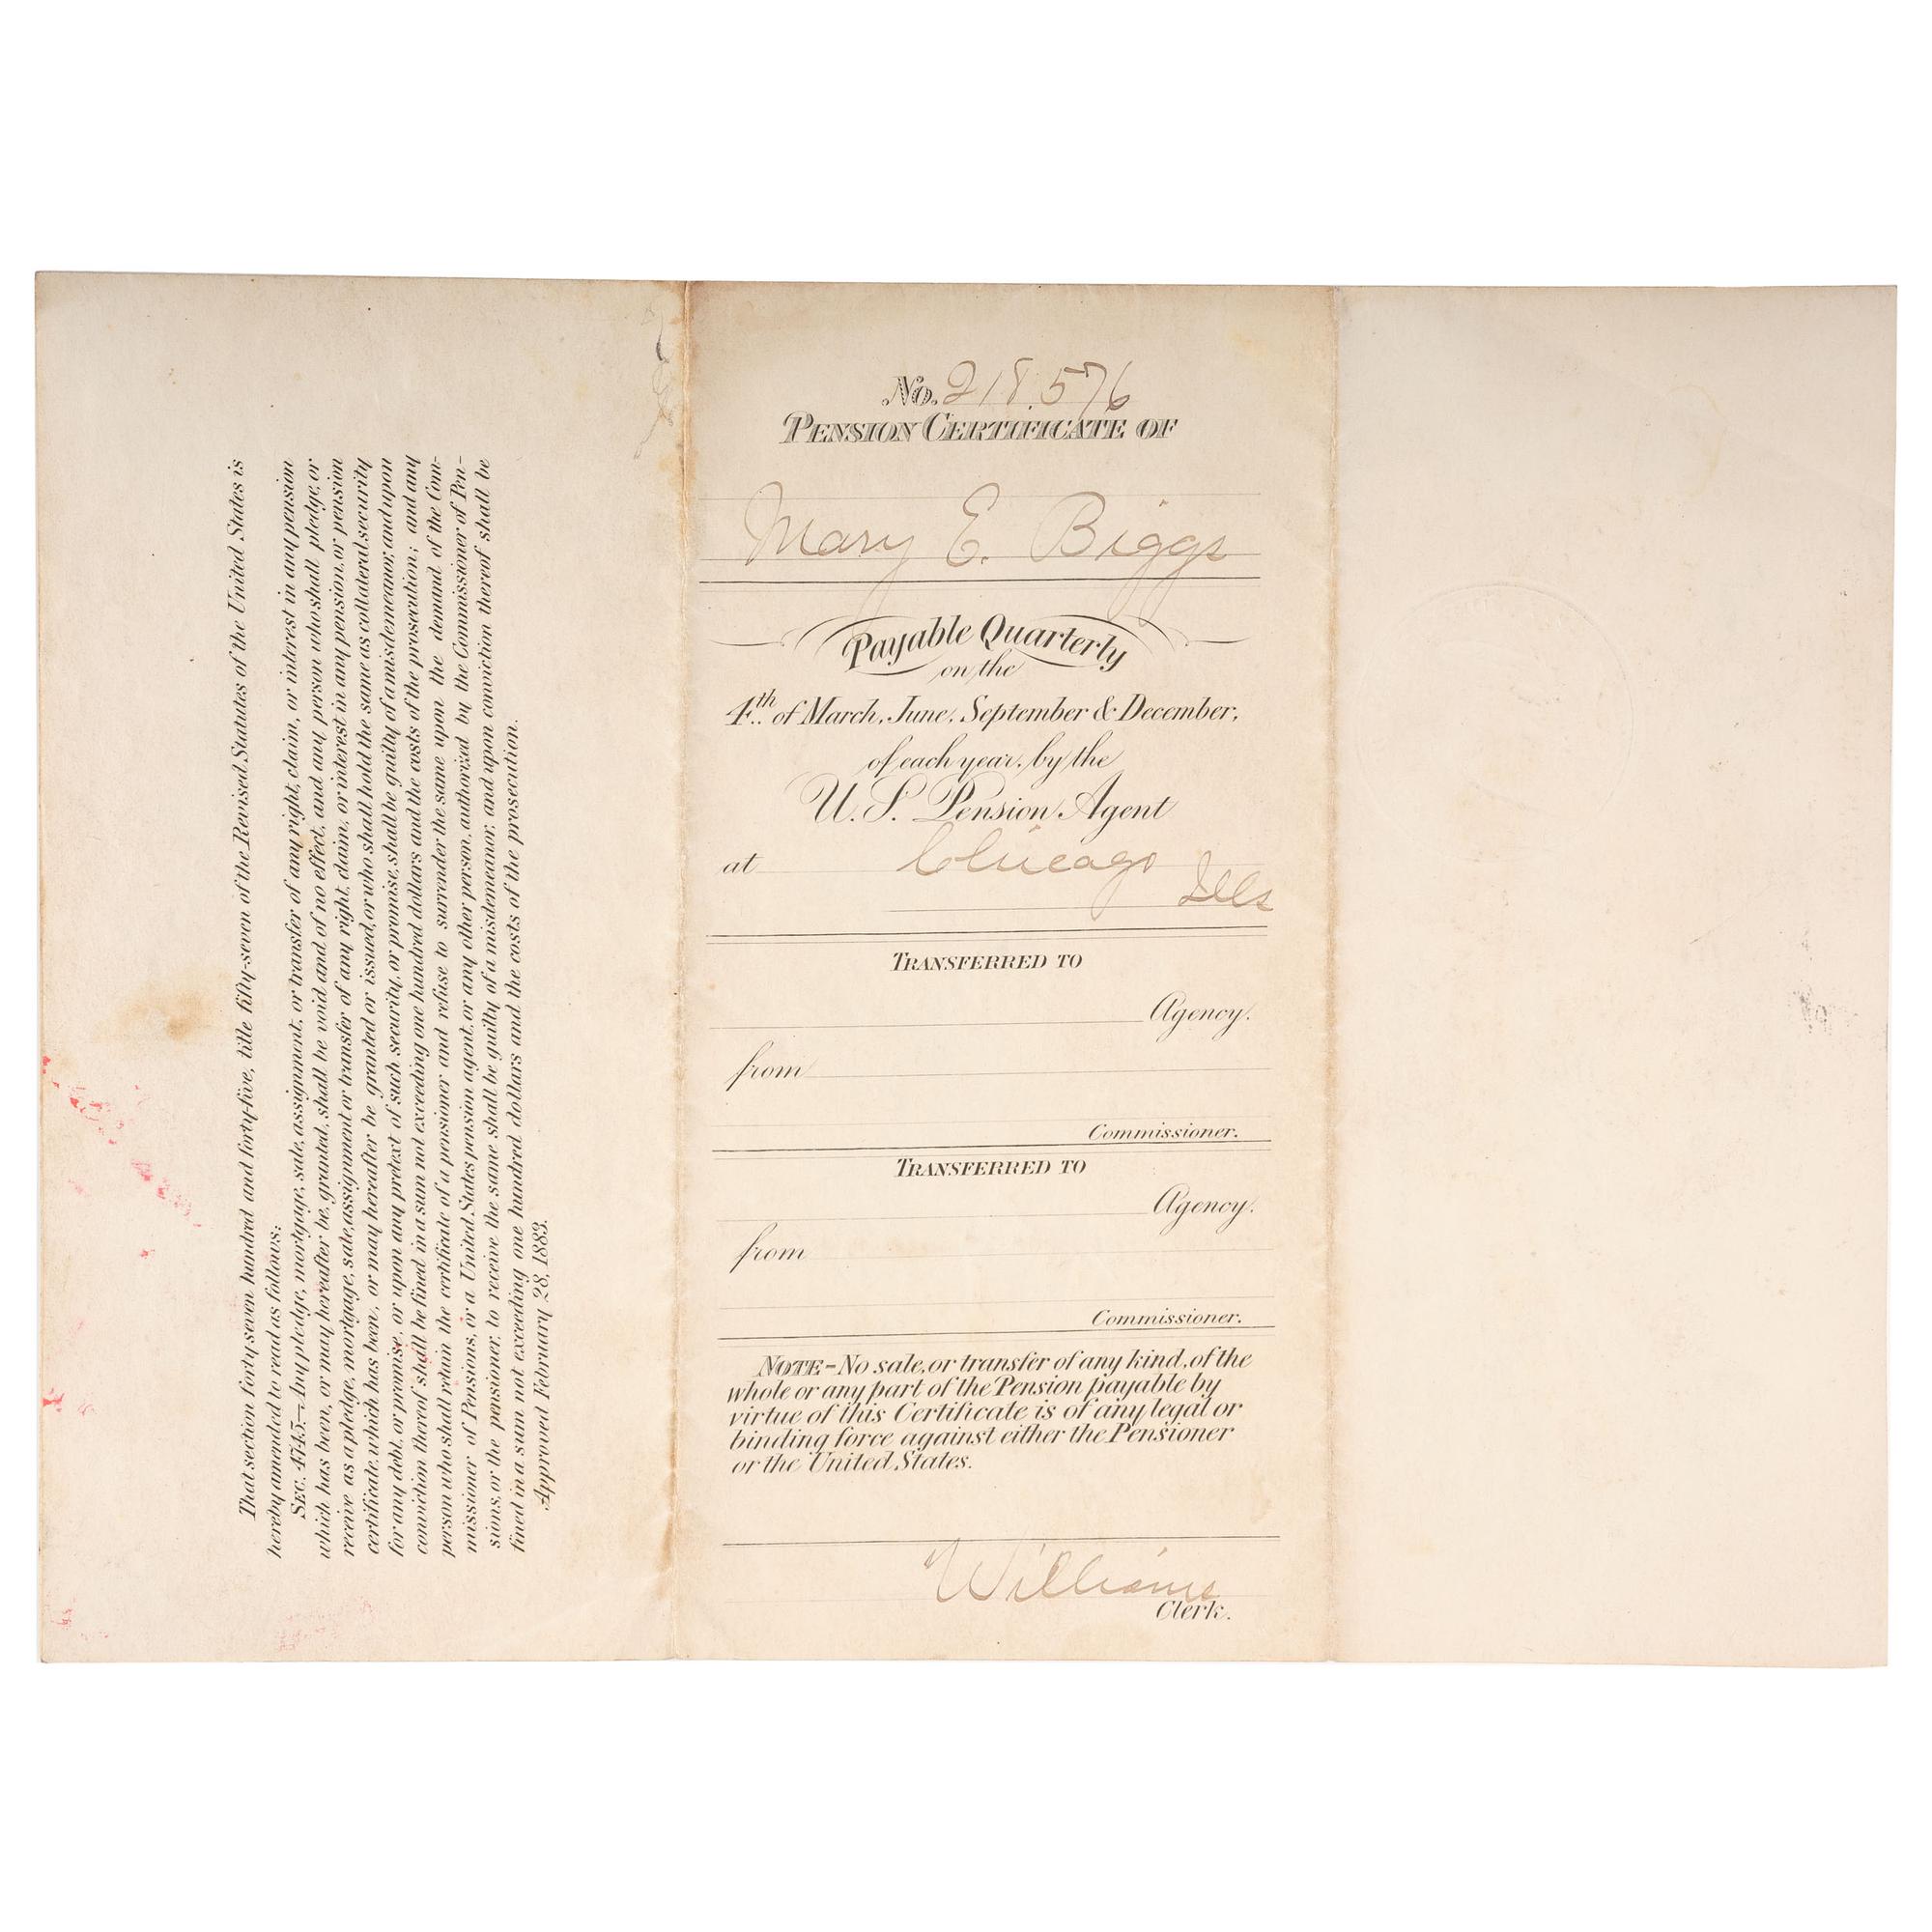 That section forty-seven hundred and forty-five, title fifty-seven of the Revised Statutes of the United States is
hereby amended to read as follows:
SEC. 4745.—Any pledge, mortgage, sale, assignment, or transfer of any right, claim, or interest in any pension
which has been, or may hereafter be, granted, shall be void and of no effect, and any person who shall pledge, or
receive as a pledge, mortgage, sale, assignment or transfer of any right, claim, or interest in any pension, or pension
certificate, which has been, or may hereafter be granted or issued, or who shall hold the same as collateral security
for any debt, or promise, or upon any pretext of such security, or promise, shall be guilty of a misdemeanor, and upon
conviction thereof shall be fined in a sum not exceeding one hundred dollars and the costs of the prosecution; and any
person who shall retain the certificate of a pensioner and refuse to surrender the same upon the demand of the Com-
missioner of Pensions, or a United States pension agent, or any other person, authorized by the Commissioner of Pen-
sions, or the pensioner, to receive the same shall be guilty of a misdemeanor, and upon conviction thereof shall be
fined in a sum not exceeding one hundred dollars and the costs of the prosecution.
Approved February 28, 1883.
No. 218.576
PENSION CERTIFICATE OF
Mary E. Biggs
Payable Quarterly
on the
4th of March, June, September & December,
of each year, by the
U.S. Pension Agent
at Chicago
Ills
TRANSFERRED TO
Agency.
from
Commissioner.
TRANSFERRED TO
Agency.
from
Commissioner.
NOTE – No sale, or transfer of any kind, of the
whole or any part of the Pension payable by
virtue of this Certificate is of any legal or
binding force against either the Pensioner
or the United States.
Williams
Clerk.